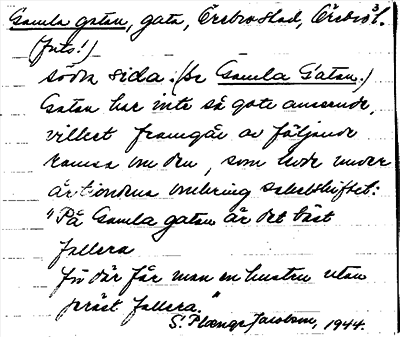 Gamla gatan, gata, Örebro stad, Örebro l.
(Juts!)
södra sida. (Se Gamla Gatan.)
Gatan har inte så gott anseende,
vilket framgår av följande
ramsa om den, som levde under
årtiondena omkring sekelskiftet:
"På Gamla gatan är det bäst
fallera
för där får man en hustru utan
präst fallera."
S. Planga Jacobson, 1944.